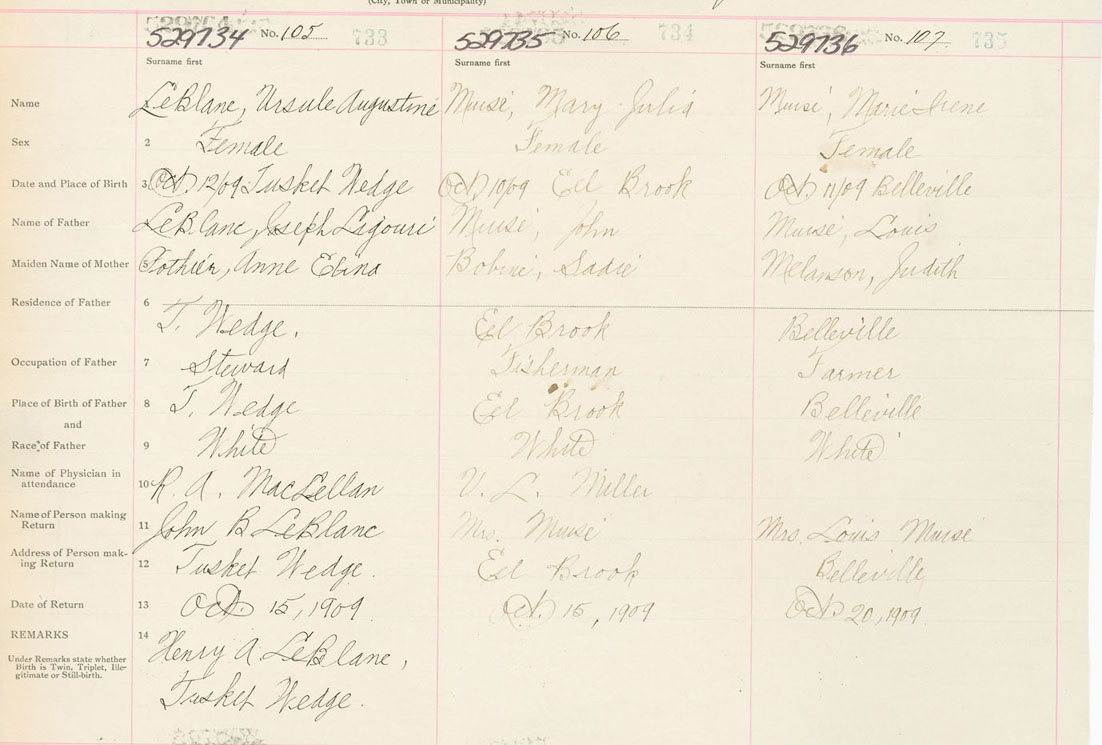 (City, Town or Municipality)
529734 No. 105 733 529735 No. 106 734 529736 No. 107 735
Surname first Surname first Surname first
Name LeBlanc, Ursule Augustine Muise, Mary Julia Muise, Marie Irene
Sex 2 Female Female Female
Date and Place of Birth 3 Oct 12/09 Tusket Wedge Oct 10/09 Eel Brook Oct 11/09 Belleville
Name of Father LeBlanc, Joseph Ligouri Muise, John Muise, Louis
Maiden Name of Mother 5 Pothier, Anne Elina Bobine, Sadie Melanson, Judith
Residence of Father 6 T. Wedge. Eel Brook Belleville
Occupation of Father 7 Steward Fisherman Farmer
Place of Birth of Father 8 T. Wedge Eel Brook Belleville
and
Race of Father 9 White White White
Name of Physician in
attendance 10 R. A. MacLellan V. L. Miller
Name of Person making
Return 11 John B LeBlanc Mrs. Muise Mrs. Louis Muise
Address of Person mak-
ing Return 12 Tusket Wedge. Eel Brook Belleville
Date of Return 13 Oct. 15, 1909 Oct. 15, 1909 Oct 20, 1909.
REMARKS 14 Henry A. LeBlanc,
Under Remarks state whether
Birth is Twin, Triplet, Ille-
gitimate or Still-birth.
Tusket Wedge.